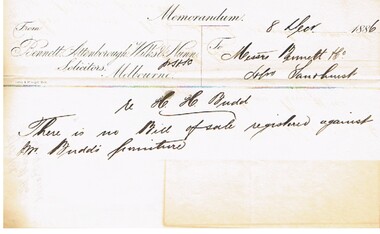 Memorandum.
From
8 Oct 1886
Bennett, Attenborough, Wilks & Nunn,
To
Messrs Bennett &Co
Solicitors.
Melbourne
Sandhurst
re H H Budd
There is no Bill of sale registered against
Mr Budds furniture